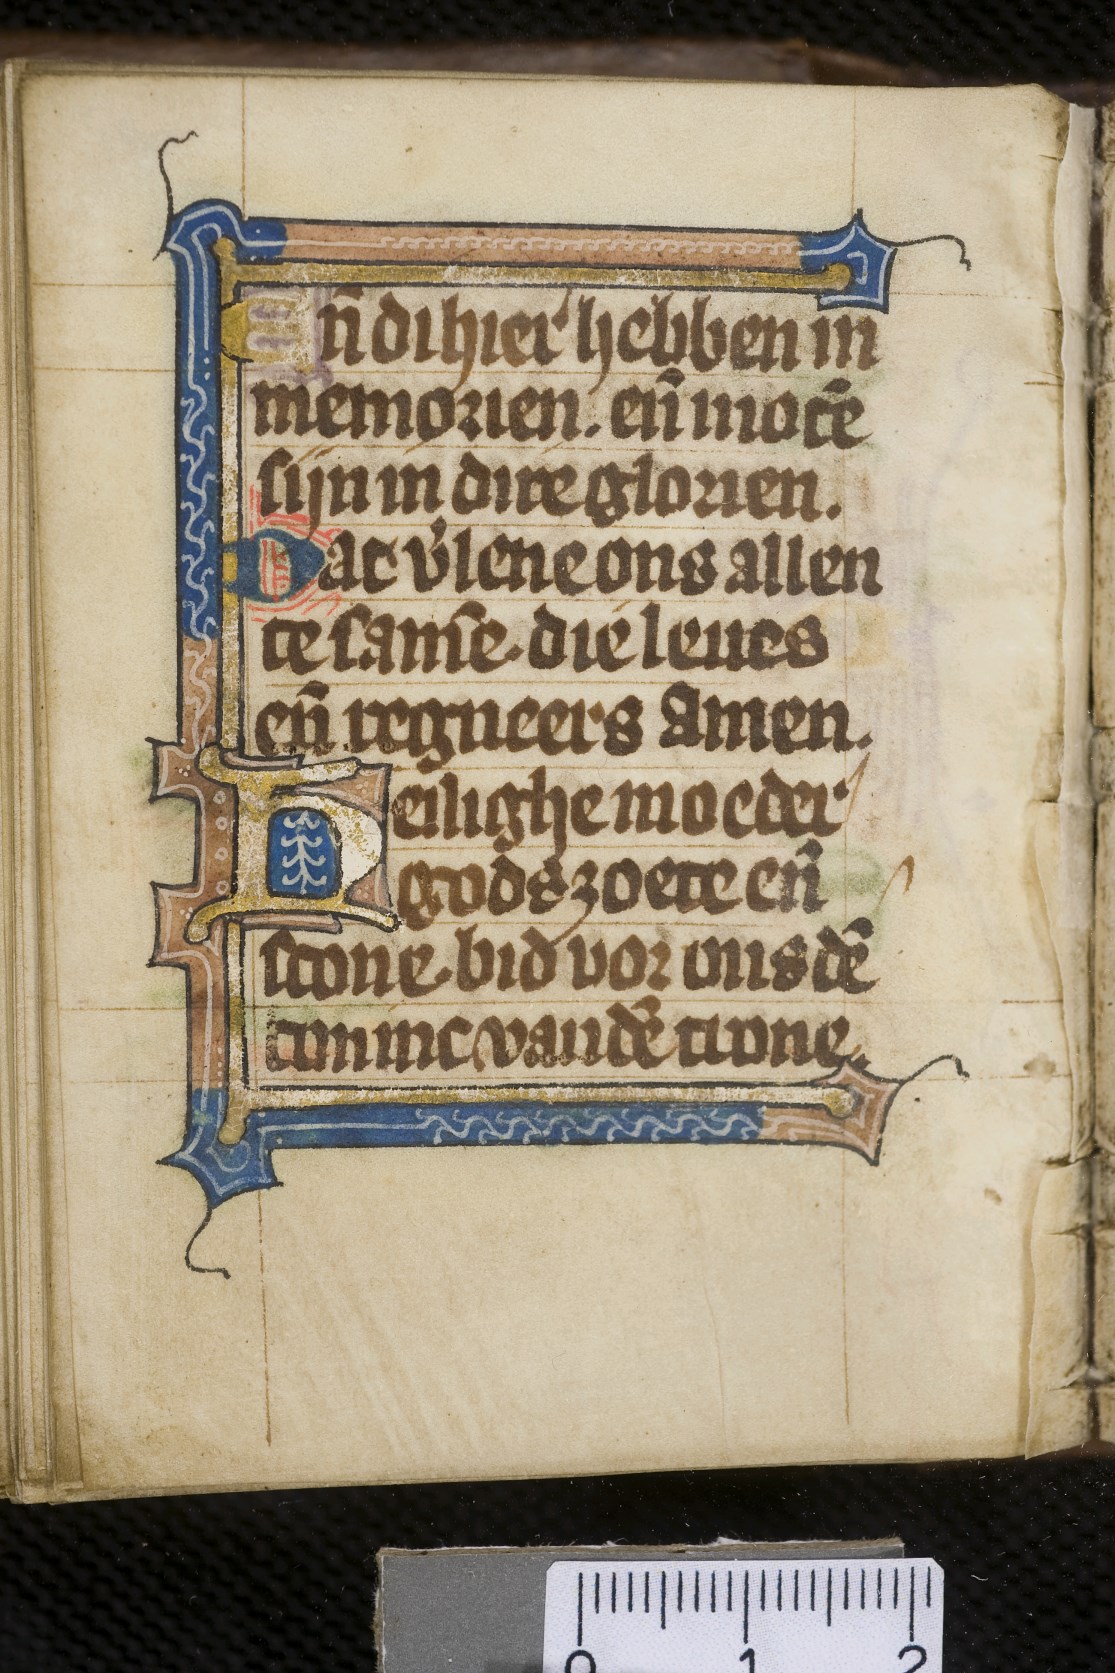 Eñ di hier hebben in
memorien. eñ moetē
sijn in dire glorien.
Dat v̉lene ons allen
te samē. die leues
eñ regneers Amen.
Heilighe moeder
gods zoete eñ
scone. bid vor ons dē
coninc van dē trone.
0 1 2